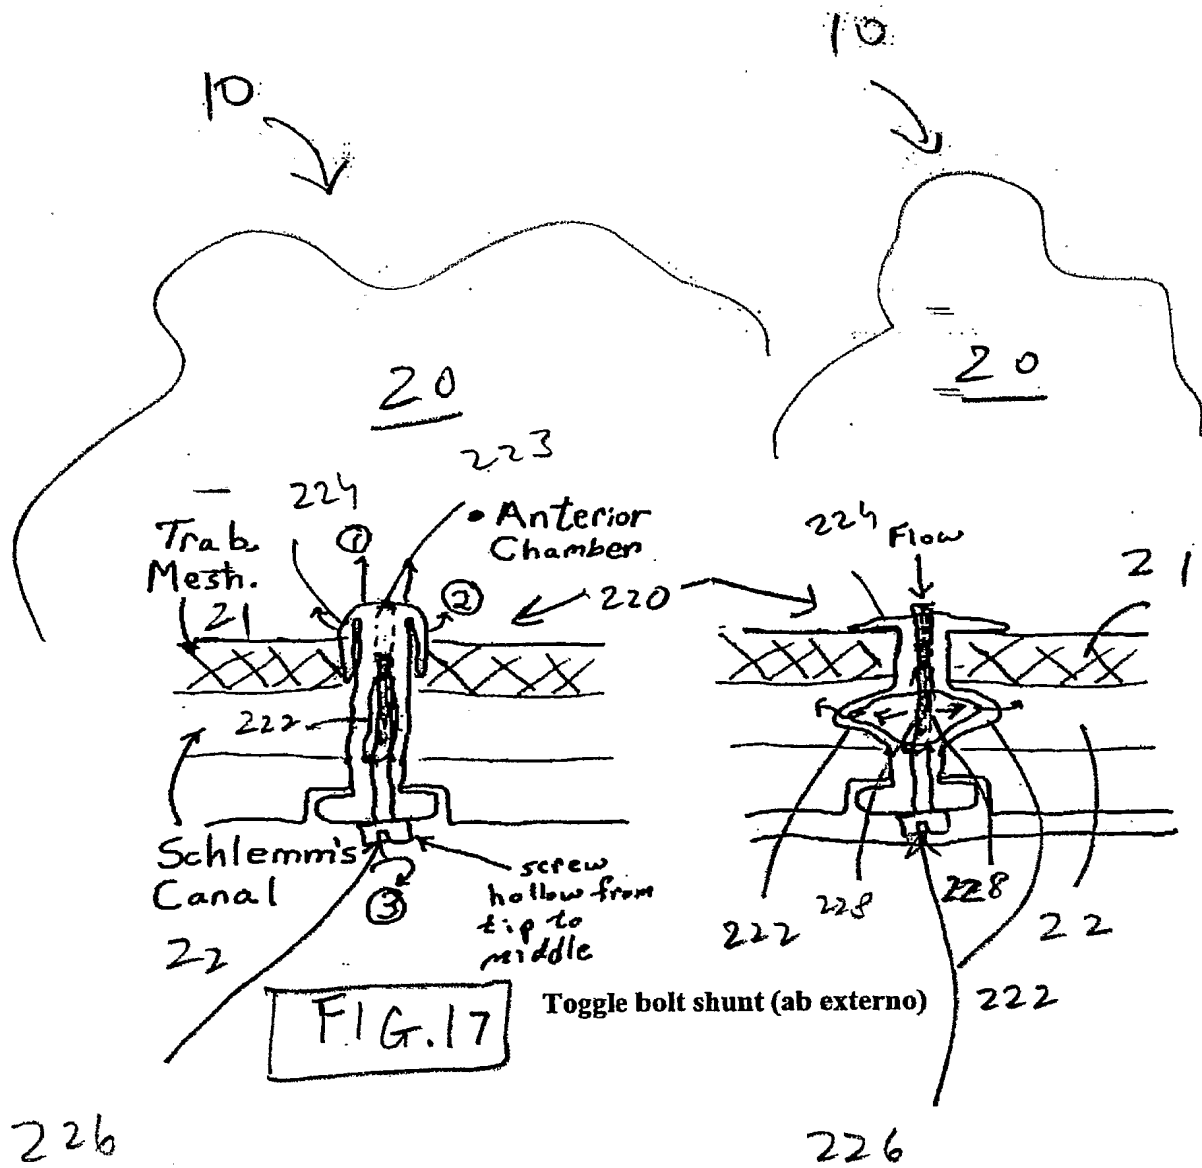 10
10
20
20
223
224
• Anterior
Chamber
Trab.
Mesh.
21
①
②
220
224
Flow
21
222
Schlemm's
Canal
22
③
screw
hollow from
tip to
middle
222
228
228
22
222
FIG. 17
Toggle bolt shunt (ab externo)
226
226